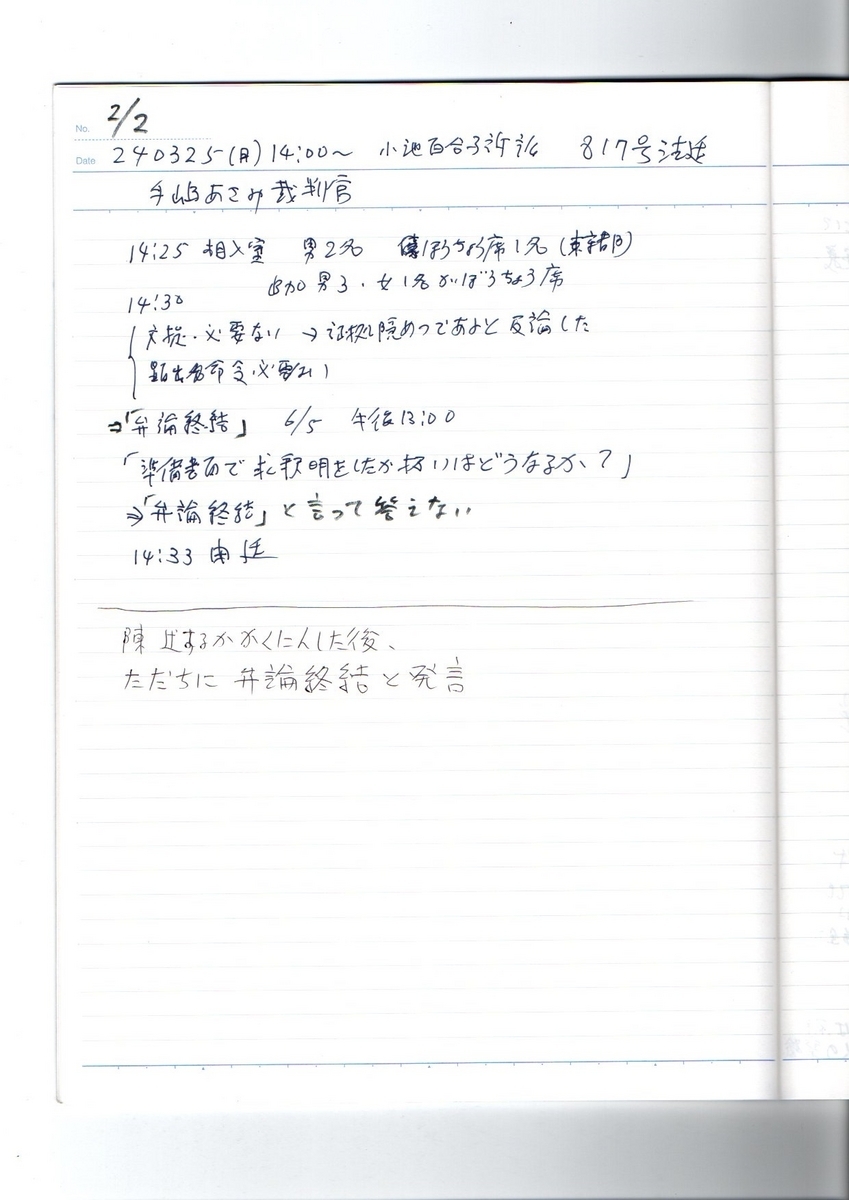 No. 2/2
Date 240325(月)14:00〜 小池百合子訴訟 817号法廷
手嶋あさみ裁判官
14:25 入室 男2名 ぼうちょう席1名
男3・女1名がぼうちょう席
14:30
文提・必要ない → 証拠隠めつであると反論した
命令必要ない
⇒「弁論終結」 6/5 午後13:00
「準備書面で求釈明をしたが扱いはどうなるか?」
⇒「弁論終結」と言って答えない
14:33 廷
陳述するかかくにんした後、
ただちに 弁論終結と発言